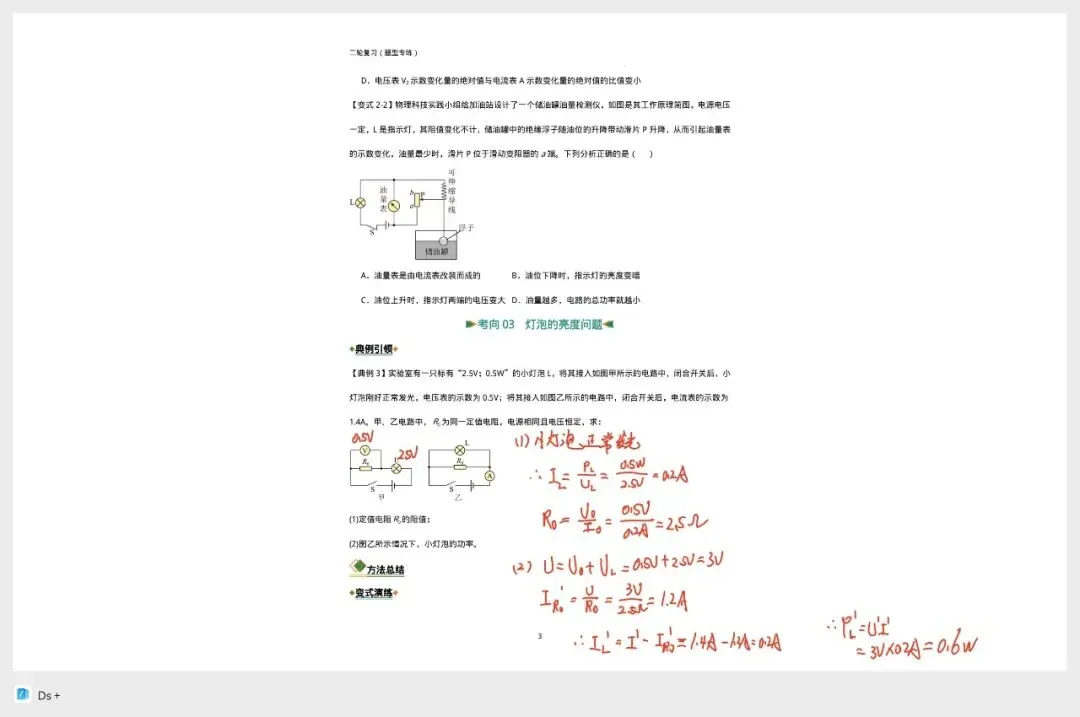 二轮复习（题型专练）
D．电压表 V₂ 示数变化量的绝对值与电流表 A 示数变化量的绝对值的比值变小
【变式 2-2】物理科技实践小组给加油站设计了一个储油罐油量检测仪，如图是其工作原理简图，电源电压
一定，L 是指示灯，其阻值变化不计，储油罐中的绝缘浮子随油位的升降带动滑片 P 升降，从而引起油量表
的示数变化，油量最少时，滑片 P 位于滑动变阻器的 a 端。下列分析正确的是（　　）
可伸缩导线
油量表
b
P
a
L
S
浮子
储油罐
A．油量表是由电流表改装而成的　B．油位下降时，指示灯的亮度变暗
C．油位上升时，指示灯两端的电压变大　D．油量越多，电路的总功率就越小
考向 03　灯泡的亮度问题
典例引领
【典例 3】实验室有一只标有“2.5V；0.5W”的小灯泡 L，将其接入如图甲所示的电路中，闭合开关后，小
灯泡刚好正常发光，电压表的示数为 0.5V；将其接入如图乙所示的电路中，闭合开关后，电流表的示数为
1.4A。甲、乙电路中， R₀ 为同一定值电阻，电源相同且电压恒定，求：
0.5V
2.5V
V
R₀
L
S
甲
L
R₀
A
S
乙
(1)定值电阻 R₀ 的阻值；
(2)图乙所示情况下，小灯泡的功率。
方法总结
变式演练
(1) 小灯泡正常发光
∴ I_L = P_L/U_L = 0.5W/2.5V = 0.2A
R₀ = U₀/I₀ = 0.5V/0.2A = 2.5Ω
(2) U = U₀ + U_L = 0.5V + 2.5V = 3V
I_R₀' = U/R₀ = 3V/2.5Ω = 1.2A
∴ I_L' = I' - I_R₀' = 1.4A - 1.2A = 0.2A
∴ P_L' = U'I'
= 3V×0.2A = 0.6W
3
Ds +